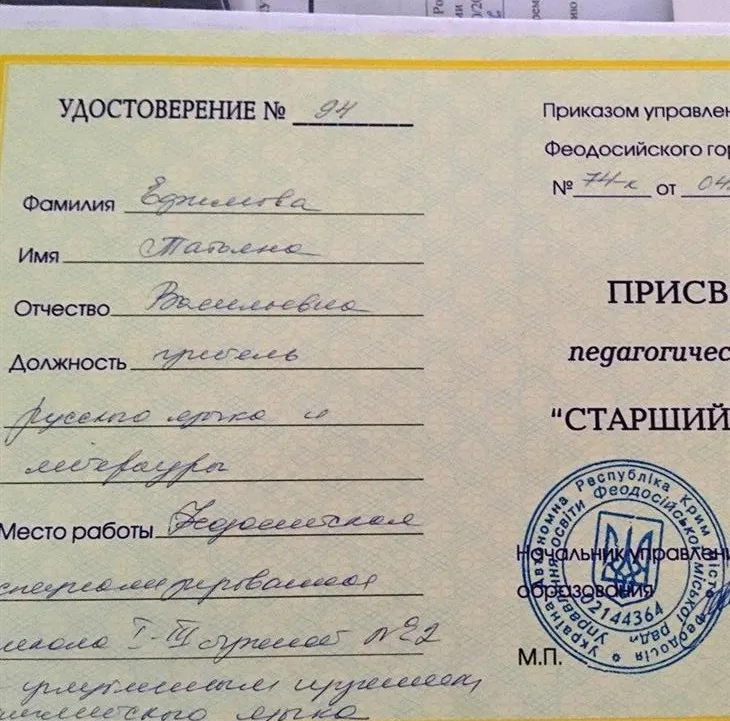 УДОСТОВЕРЕНИЕ № 94
Фамилия Ефимова
Имя Татьяна
Отчество Васильевна
Должность учитель
русского языка и
литературы
Место работы Феодосийская
специализированная
школа I-III ступеней №2
с углубленным изучением
английского языка
Приказом управлен
Феодосийского гор
№ 74-к от 04.
ПРИСВ
педагогичес
"СТАРШИЙ
Начальник управлени
образования
М.П.
Україна Автономна Республіка Крим місто Феодосія
Управління освіти Феодосійської міської ради
02144364